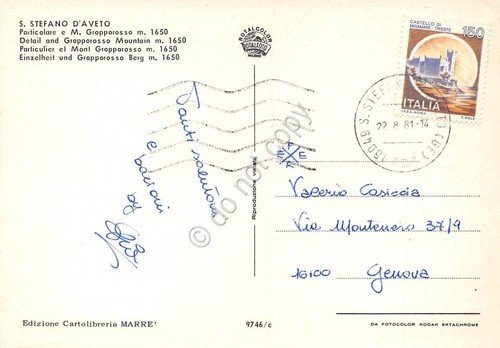 S. STEFANO D'AVETO
Particolare e M. Gropporosso m. 1650
Detail and Gropporosso Mountain m. 1650
Particulier et Mont Gropporosso m. 1650
Einzelheit und Gropporosso Berg m. 1650
ROTALCOLOR
ROTALFOTO
MILANO
CASTELLO DI
MIRAMARE - TRIESTE
150
ITALIA
16049 S. STEF
(GE)
22.8.81-14
Tanti salutoni
e bacioni
Riproduzione vietata
do not copy
Valerio Casiccia
Via Montenero 37/9
16100 Genova
Edizione Cartolibreria MARRE'
9746/c
DA FOTOCOLOR KODAK EKTACHROME